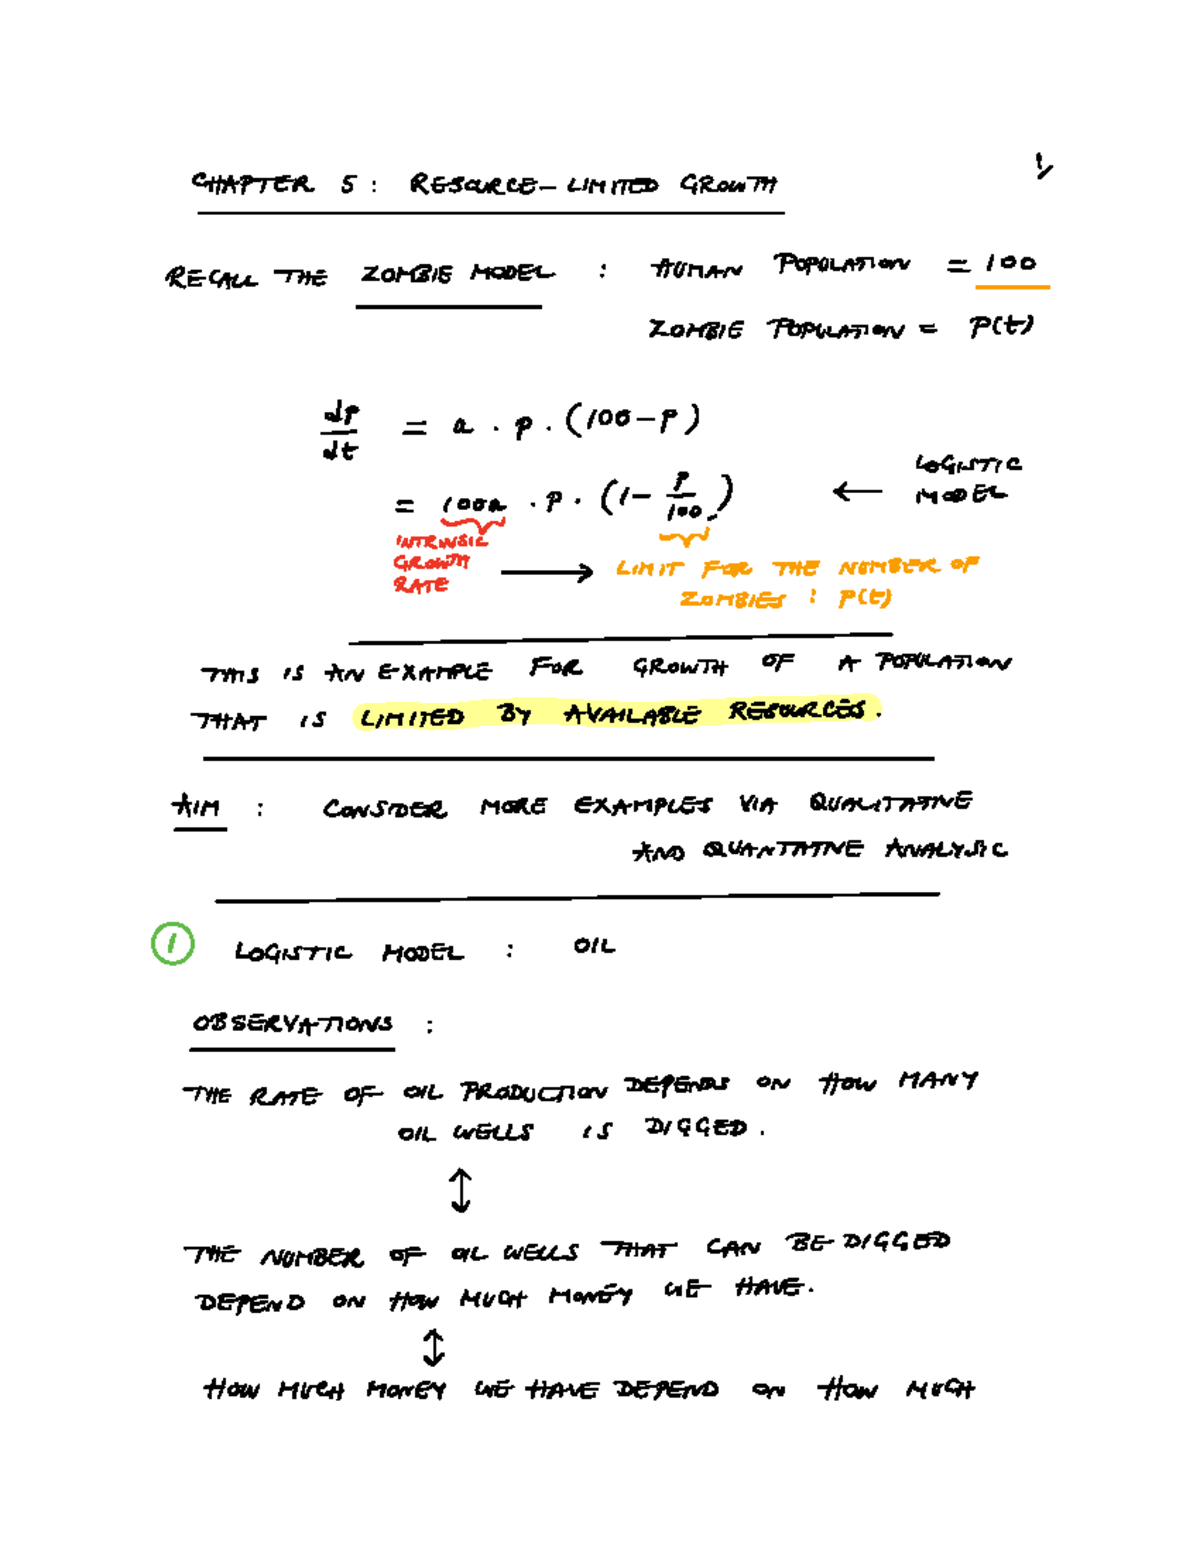 1/
CHAPTER 5 : RESOURCE-LIMITED GROWTH
RECALL THE ZOMBIE MODEL : HUMAN POPULATION = 100
ZOMBIE POPULATION = P(t)
dP/dt = a · P · (100-P)
= 100a · P · (1- P/100)
← LOGISTIC MODEL
INTRINSIC
GROWTH
RATE
→ LIMIT FOR THE NUMBER OF
ZOMBIES : P(t)
THIS IS AN EXAMPLE FOR GROWTH OF A POPULATION
THAT IS LIMITED BY AVAILABLE RESOURCES.
AIM : CONSIDER MORE EXAMPLES VIA QUALITATIVE
AND QUANTATIVE ANALYSIC
1 LOGISTIC MODEL : OIL
OBSERVATIONS :
THE RATE OF OIL PRODUCTION DEPENDS ON HOW MANY
OIL WELLS IS DIGGED.
↕
THE NUMBER OF OIL WELLS THAT CAN BE DIGGED
DEPEND ON HOW MUCH MONEY WE HAVE.
↕
HOW MUCH MONEY WE HAVE DEPEND ON HOW MUCH